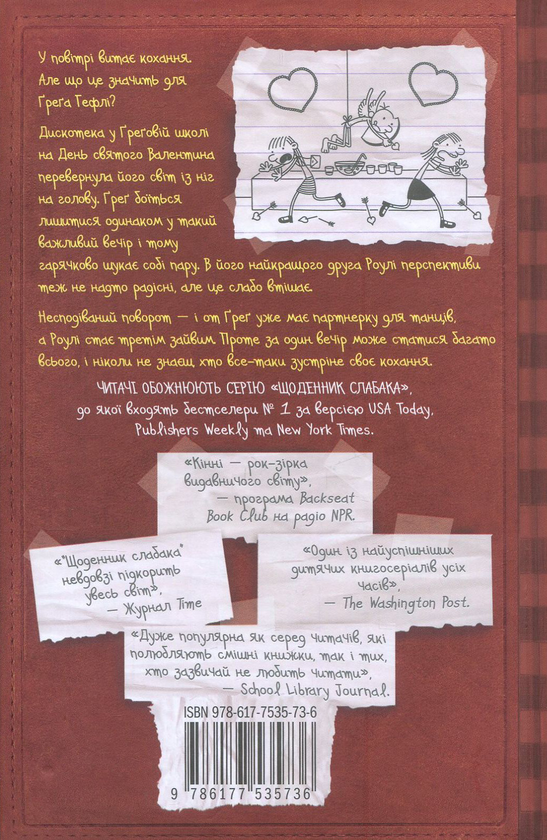 У повітрі витає кохання.
Але що це значить для
Ґреґа Гефлі?
Дискотека у Ґреґовій школі
на День святого Валентина
перевернула його світ із ніг
на голову. Ґреґ боїться
лишитися одинаком у такий
важливий вечір і тому
гарячково шукає собі пару. В його найкращого друга Роулі перспективи
теж не надто радісні, але це слабо втішає.
Несподіваний поворот — і от Ґреґ уже має партнерку для танців,
а Роулі стає третім зайвим. Проте за один вечір може статися багато
всього, і ніколи не знаєш хто все-таки зустріне своє кохання.
ЧИТАЧІ ОБОЖНЮЮТЬ СЕРІЮ «ЩОДЕННИК СЛАБАКА»,
до якої входять бестселери № 1 за версією USA Today,
Publishers Weekly та New York Times.
«Кінні — рок-зірка
видавничого світу»,
— програма Backseat
Book Club на радіо NPR.
«"Щоденник слабака"
невдовзі підкорить
увесь світ»,
— Журнал Time
«Один із найуспішніших
дитячих книгосеріалів усіх
часів»,
— The Washington Post.
«Дуже популярна як серед читачів, які
полюбляють смішні книжки, так і тих,
хто зазвичай не любить читати»,
— School Library Journal.
ISBN 978-617-7535-73-6
9 786177 535736